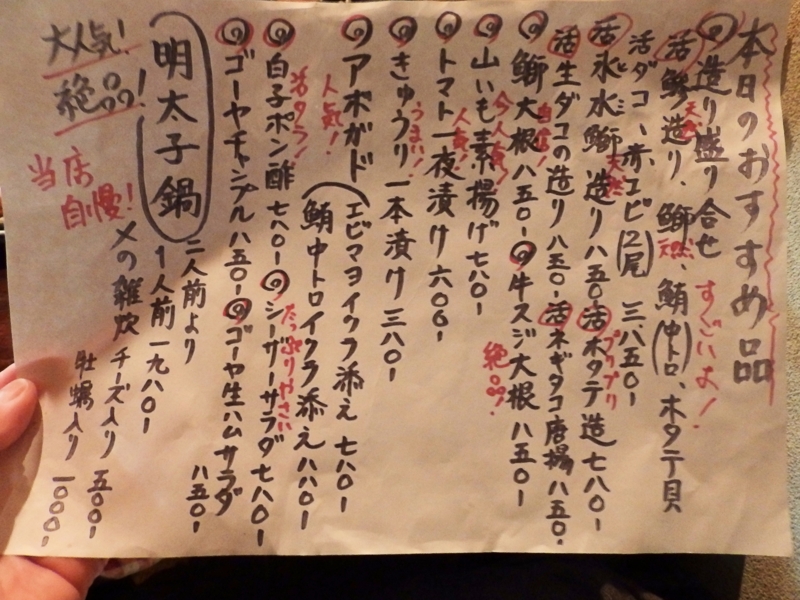 本日のおすすめ品
造り盛り合せ すごいよ!
活 天然 鯵造り、鰤 天然、鮪(中トロ)、ホタテ貝
活ダコ、赤エビ(2尾) 三、八五〇-
活 氷水鰤 天然 造り 八五〇-
活 ホタテ造 七八〇- プリプリ
活 生ダコの造り 八五〇-
活 ネギダコ唐揚 八五〇-
鰤大根 八五〇- 自信!
牛スジ大根 八五〇- 絶品!
山いも素揚げ 七八〇- 今人気!
トマト一夜漬け 六〇〇- 人気!
きゅうり一本漬け 三八〇- うまい!
アボガド 人気!
エビマヨイクラ添え 七八〇-
鮪中トロイクラ添え 八八〇-
白子ポン酢 七八〇- 活タラ!
シーザーサラダ 七八〇- たっぷりやさい
ゴーヤチャンプル 八五〇-
ゴーヤ生ハムサラダ 八五〇-
明太子鍋
二人前より
1人前 一九八〇-
〆の雑炊 チーズ入り 五〇〇-
牡蠣入り 一〇〇〇-
大人気!
絶品!
当店
自慢!